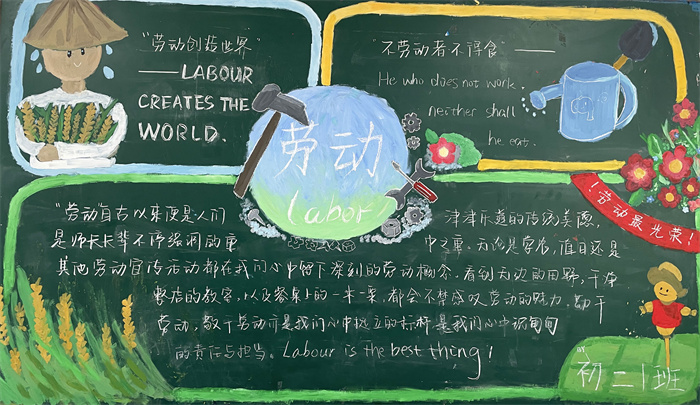 "劳动创造世界"
——LABOUR
CREATES THE
WORLD.
"不劳动者不得食"——
He who does not work.
neither shall
he eat.
劳动
Labor
！劳动最光荣！
"劳动自古以来便是人们
津津乐道的传统美德，
是师长长辈不停强调的重
中之重。无论是学农，值日还是
其他劳动宣传活动都在我们心中留下深刻的劳动概念。看到大边的田野，干净
整洁的教室，以及餐桌上的一米一粟，都会不禁感叹劳动的魅力。勤于
劳动，敬于劳动亦是我们心中挺立的标杆是我们心中沉甸甸
的责任与担当。Labour is the best thing！
初二1班